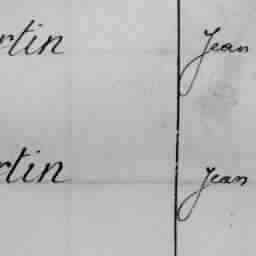 rtin Jean
rtin Jean